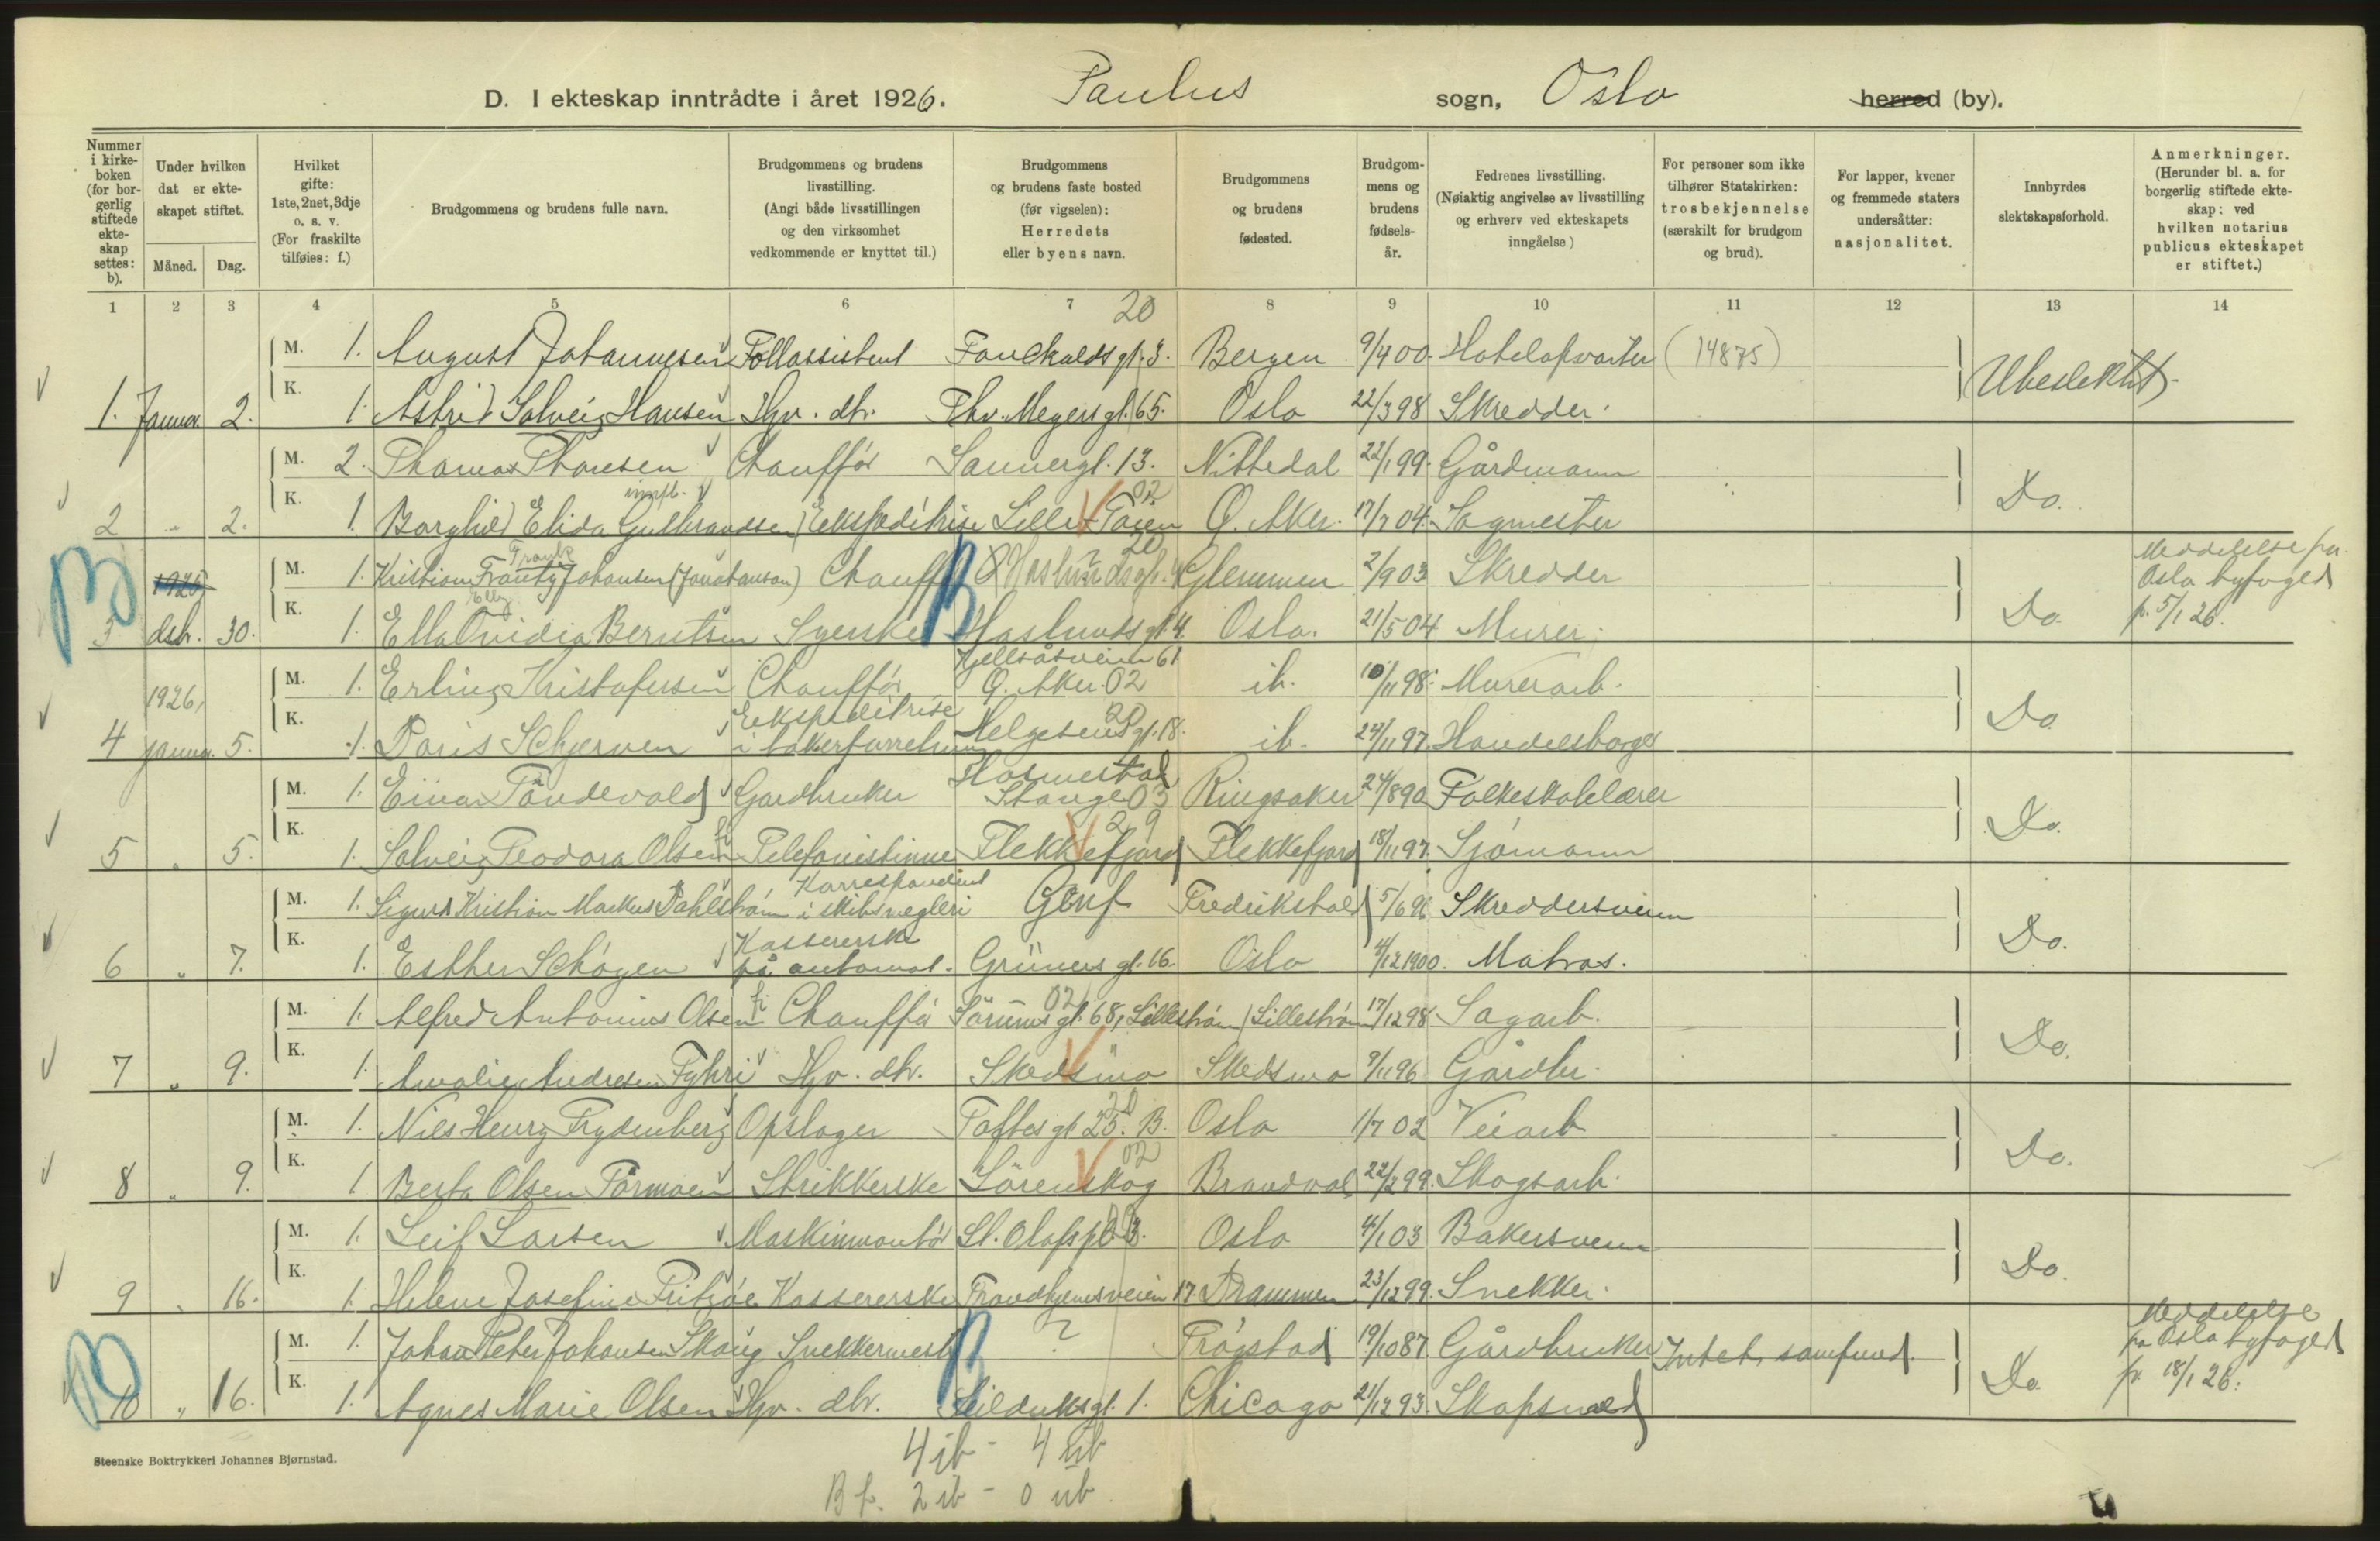 D. I ekteskap inntrådte i året 1926. Paulus sogn, Oslo herred (by).
Nummer i kirkeboken (for borgerlig stiftede ekteskap settes: b).
Under hvilken dat er ekteskapet stiftet.
Måned. Dag.
Hvilket gifte: 1ste, 2net, 3dje o. s. v. (For fraskilte tilføies: f.)
Brudgommens og brudens fulle navn.
Brudgommens og brudens livsstilling. (Angi både livsstillingen og den virksomhet vedkommende er knyttet til.)
Brudgommens og brudens faste bosted (før vigselen): Herredets eller byens navn.
Brudgommens og brudens fødested.
Brudgommens og brudens fødselsår.
Fedrenes livsstilling. (Nøiaktig angivelse av livsstilling og erhverv ved ekteskapets inngåelse)
For personer som ikke tilhører Statskirken: trosbekjennelse (særskilt for brudgom og brud).
For lapper, kvener og fremmede staters undersåtter: nasjonalitet.
Innbyrdes slektskapsforhold.
Anmerkninger. (Herunder bl. a. for borgerlig stiftede ekteskap: ved hvilken notarius publicus ekteskapet er stiftet.)
1 2 3 4 5 6 7 8 9 10 11 12 13 14
20
M. 1. August Johannesen Tollassistent Fouchaldsgt. 3. Bergen 9/4 00. Hotelopvarter (14875)
Ubeslektet.
1. Januar 2. K. 1. Astrid Solveig Hansen Hjv. dtr. Thv. Meyersgt. 65. Oslo 22/3 98 Skredder.
M. 2. Thomas Thomesen Chauffør Sannergt. 13. Nittedal 22/1 99. Gårdmann
02
2 " 2. K. 1. Borghild Elida Gulbrandsen Ekspeditrise Lille-Tøien Ø. Aker. 17/7 04. Sagmester Do.
Frank 20
M. 1. Kristian Frantz Johansen (Jonatanson) Chauffør Haslundsgt. 4 Glemmen 2/9 03 Skredder
1925
Meddelelse fra Oslo byfoged p. 5/1 26.
Elly
3 dsbr. 30. K. 1. Ella Ovidia Berntsen Syerske Haslundsgt 4. Oslo. 21/5 04 Murer. Do.
Kjellsåsveien 61
1926, M. 1. Erling Kristofersen Chauffør Ø. Aker. 02 ib. 10/11 98. Murerarb.
Ekspeditrise 20
4 januar. 5. K. 1. Doris Schjerven i bakerforretning Helgesensgt. 18. ib. 24/11 97. Handelsborger Do.
Holmestad
M. 1. Einar Tandevold Gardbruker Stange 03 Ringsaker 24/8 90 Folkeskolelærer
29
5 " 5. K. 1. Solveig Teodora Olsen Telefonistinne Flekkefjord Flekkefjord 18/11 97. Sjømann Do.
Korrespondent
M. 1. Sigurd Kristian Markus Dahlstrøm i skibsmegleri Genf Fredrikshald 5/6 96 Skreddersvenn
Kassererske
6 " 7. K. 1. Esther Schøyen på automat. Grüners gt. 16. Oslo 4/12 1900. Matros. Do.
02
M. 1. Alfred Antonius Olsen Chauffør Sørums gt. 68, Lillestrøm Lillestrøm 17/12 98. Sagarb.
7 " 9. K. 1. Amalie Andresen Fyhri Hjv. dtr. Skedsmo Skedsmo 9/11 96 Gårdbr. Do.
20
M. 1. Nils Henry Frydenberg Opslager Toftes gt 25. B. Oslo 1/7 02 Veiarb
02
8 " 9. K. 1 Berta Olsen Tørmoen Strikkerske Lørenskog Brandval 22/2 99. Skogsarb. Do.
M. 1. Leif Larsen Maskinmontør St. Olafs pl. 3. Oslo 4/1 03 Bakersvenn
9 " 16. K. 1. Helene Josefine Fritzøe Kassererske Trondhjemsveien 17. Drammen 23/12 99. Snekker. Do.
M. 1. Johan Peter Johansen Skaug Snekkermest ? Trøgstad 19/10 87 Gårdbruker Intet samfund.
Meddelelse fra Oslo byfoged p. 18/1 26.
10 " 16. K. 1. Agnes Marie Olsen Hjv. dtr. Seilduksgt. 1. Chicago 21/12 93. Skapsmed Do.
Steenske Boktrykkeri Johannes Bjørnstad.
4 ib - 4 ub
B f. 2 ib - 0 ub